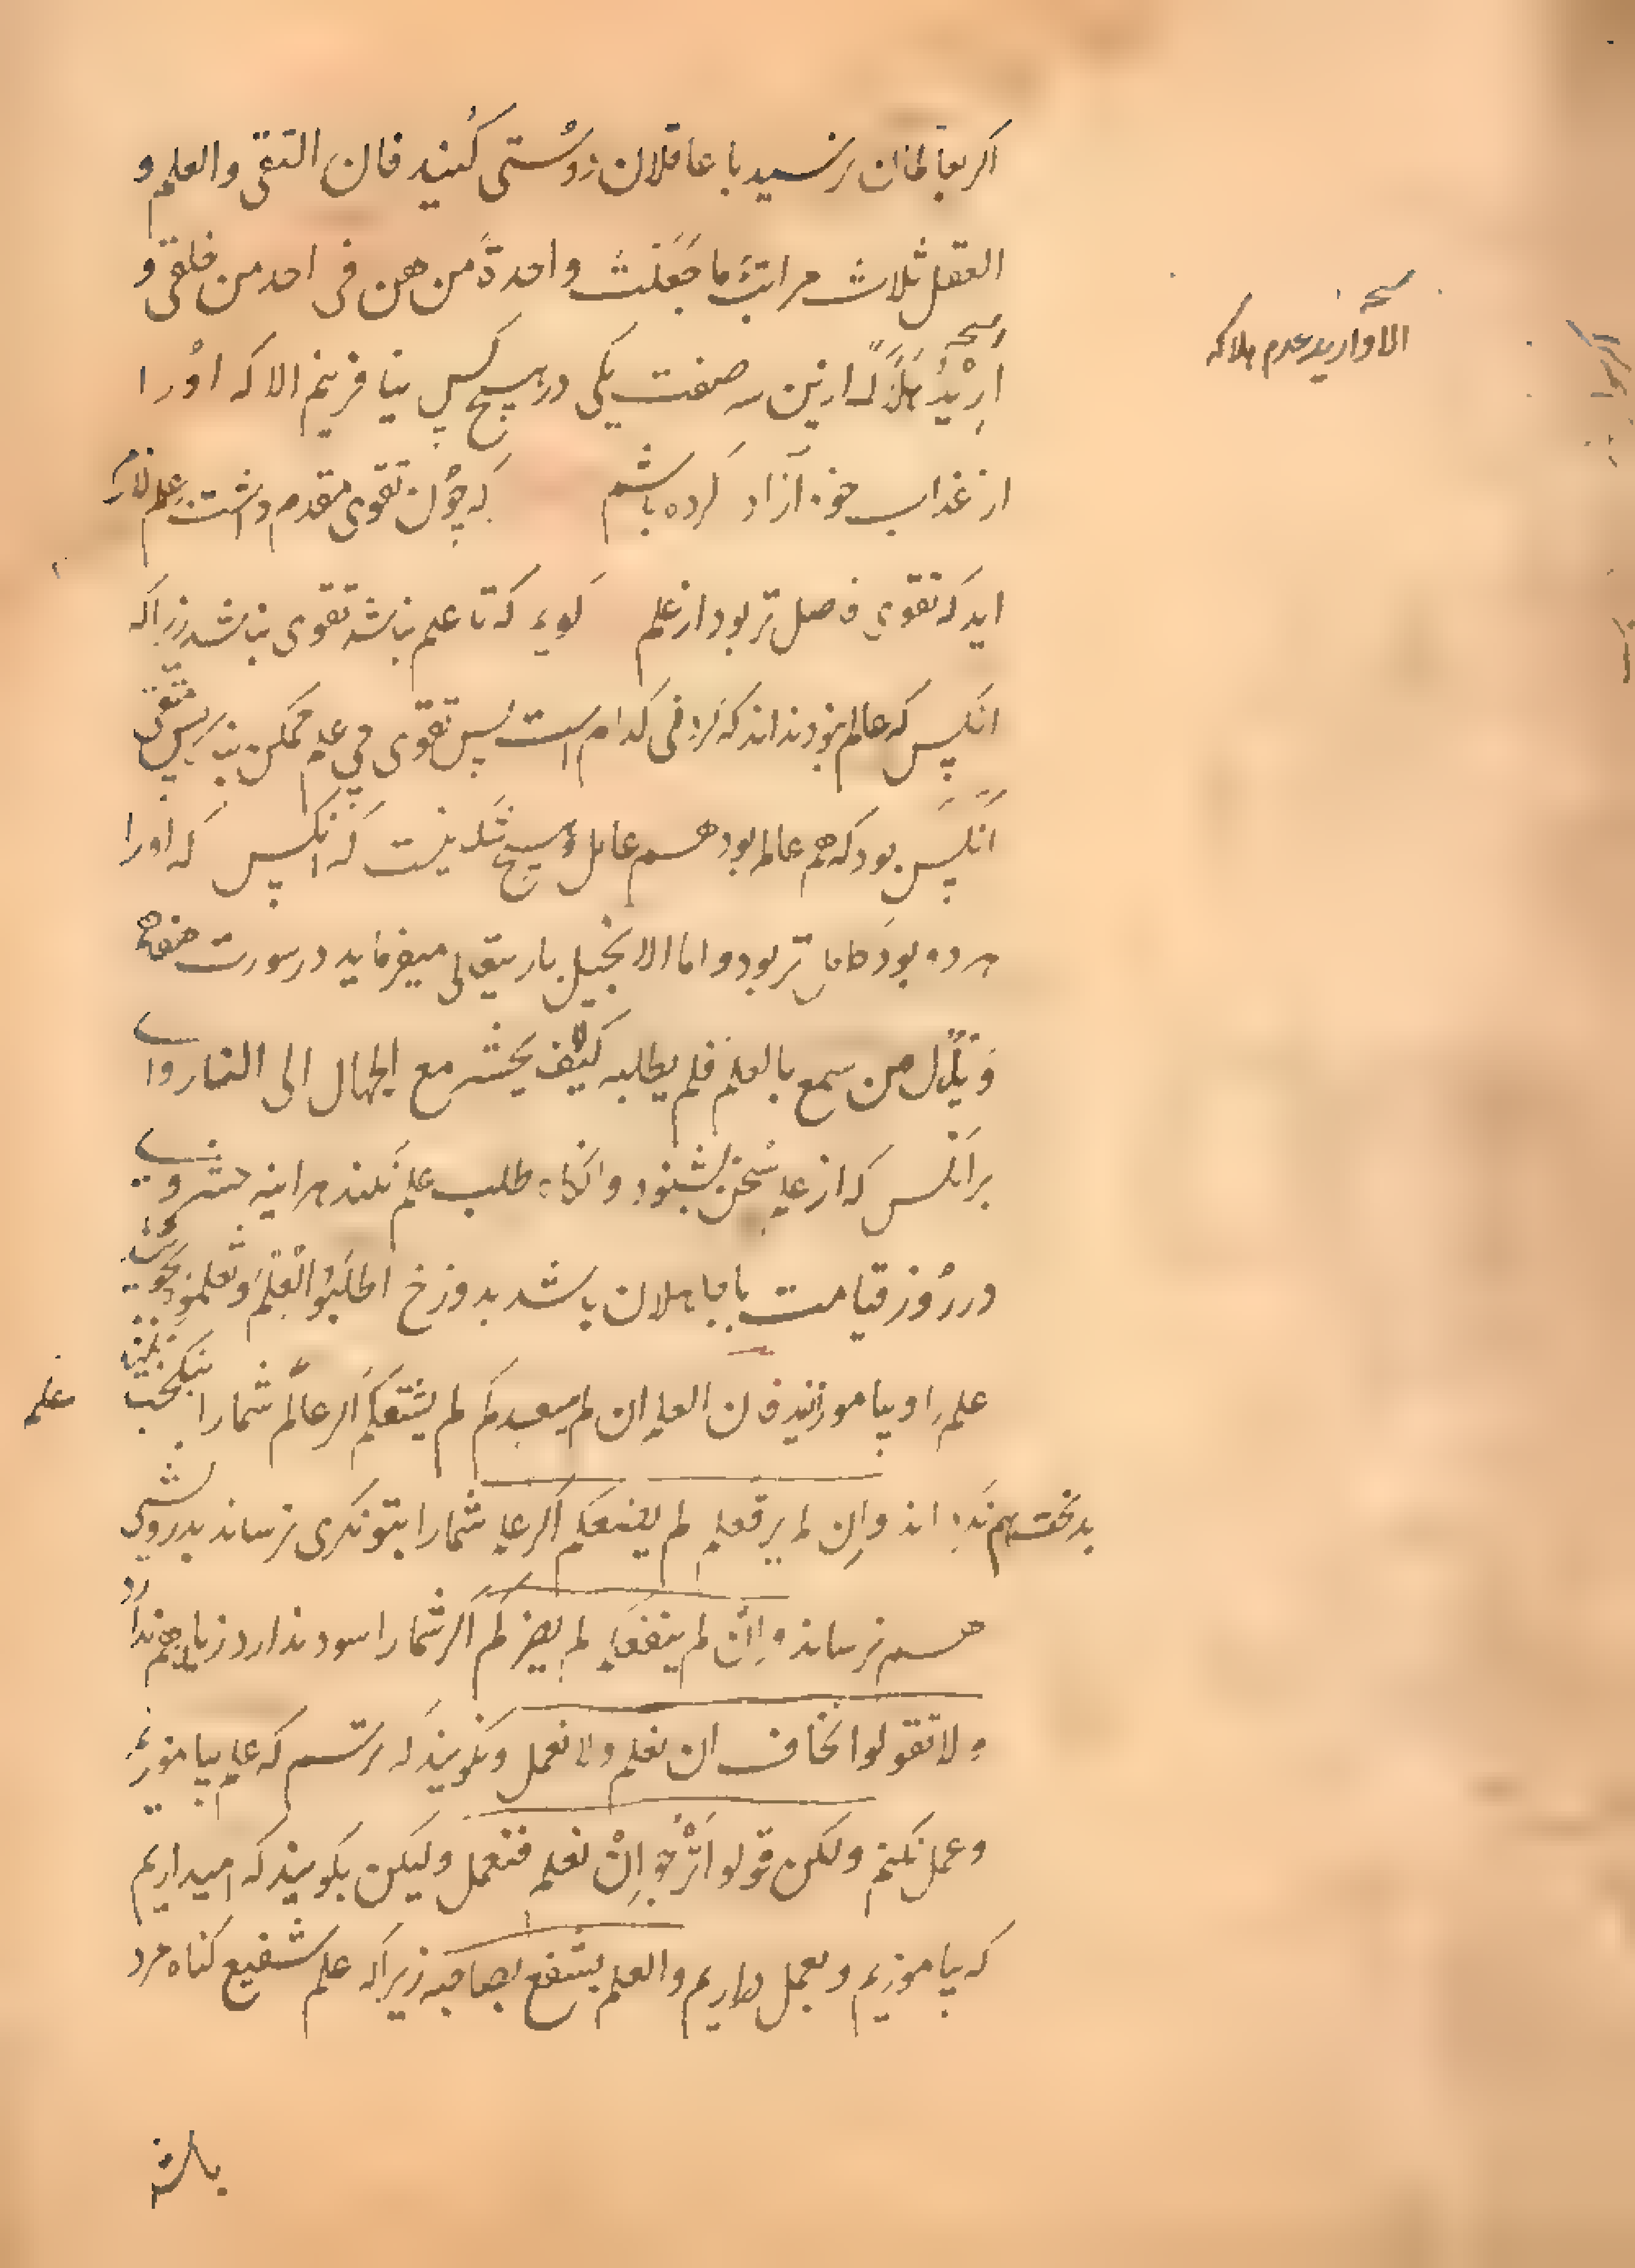 اگر بعالمان نرسید با عاقلان دوستی کنید فان التقی والعلم و
العقل ثلاث مراتب ما جعلت واحدة من هن فی احد من خلقی و
ارید هلاکه ازین سه صفت یکی در هیچ کس نیافرینم الا که اورا
از عذاب خود آزاد کرده باشم که چون تقوی مقدم داشت علم را
اید که تقوی فاضل تر بود از علم کوی که تا علم نباشد تقوی نباشد زیراکه
انکس که عالم نبود نداند که کردنی کدام است پس تقوی بی علم ممکن نیست پس متقی
آنکس بود که هم عالم بود هم عامل و هیچ شک نیست که انکس که اورا
هر دو بود کامل تر بود و اما الانجیل باریتعالی میفرماید در سورت هفدهم
ویل لمن سمع بالعلم فلم یطلبه کیف یحشر مع الجهال الی النار وای
برانکس که از علم سخن بشنود وانکاه طلب علم نکند هراینه حشر وی
در روز قیامت با جاهلان باشد بدوزخ اطلبوا العلم وتعلموه بجویید
علم را و بیاموزید فان العلم ان لم یسعدکم لم یشقکم اگر علم شما را نیکبخت نکند
بدبخت هم نکرداند وان لم یرفعکم لم یضعکم اگر علم شما را بتونکری نرساند بدرویشی
هم نرساند وان لم ینفعکم لم یضرکم اگر شما را سود ندارد زیان هم ندارد
ولا تقولوا نخاف ان نعلم ولا نعمل ونکویند که ترسم که علم بیاموزیم
وعمل نکنم ولکن قولوا نرجو ان نعلم فنعمل ولیکن بکویند که امیداریم
که بیاموزیم وبعمل داریم والعلم یشفع لصاحبه زیراکه علم شفیع کناه مرد
باشد
نسخه
الا و ارید عدم هلاکه
علم